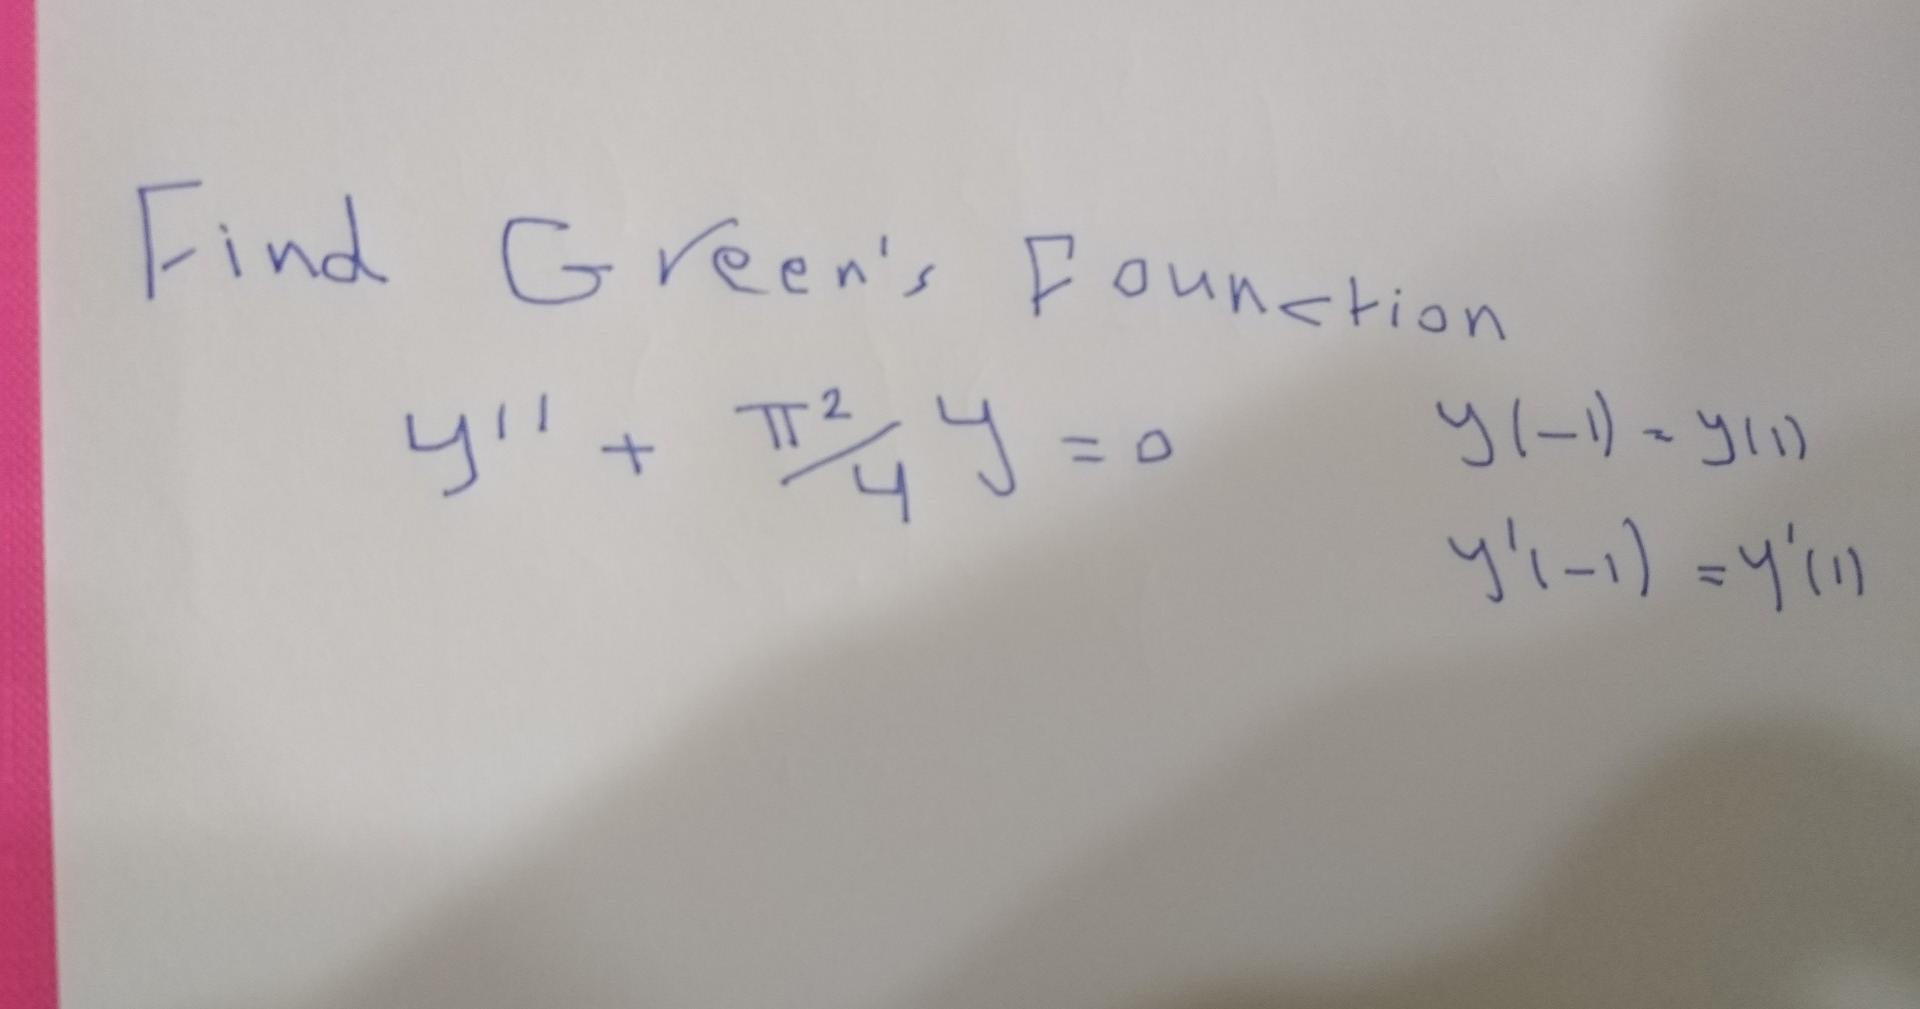 Find Green's Founction
y'' + π²/4 y = 0 y(-1) = y(1)
y'(-1) = y'(1)